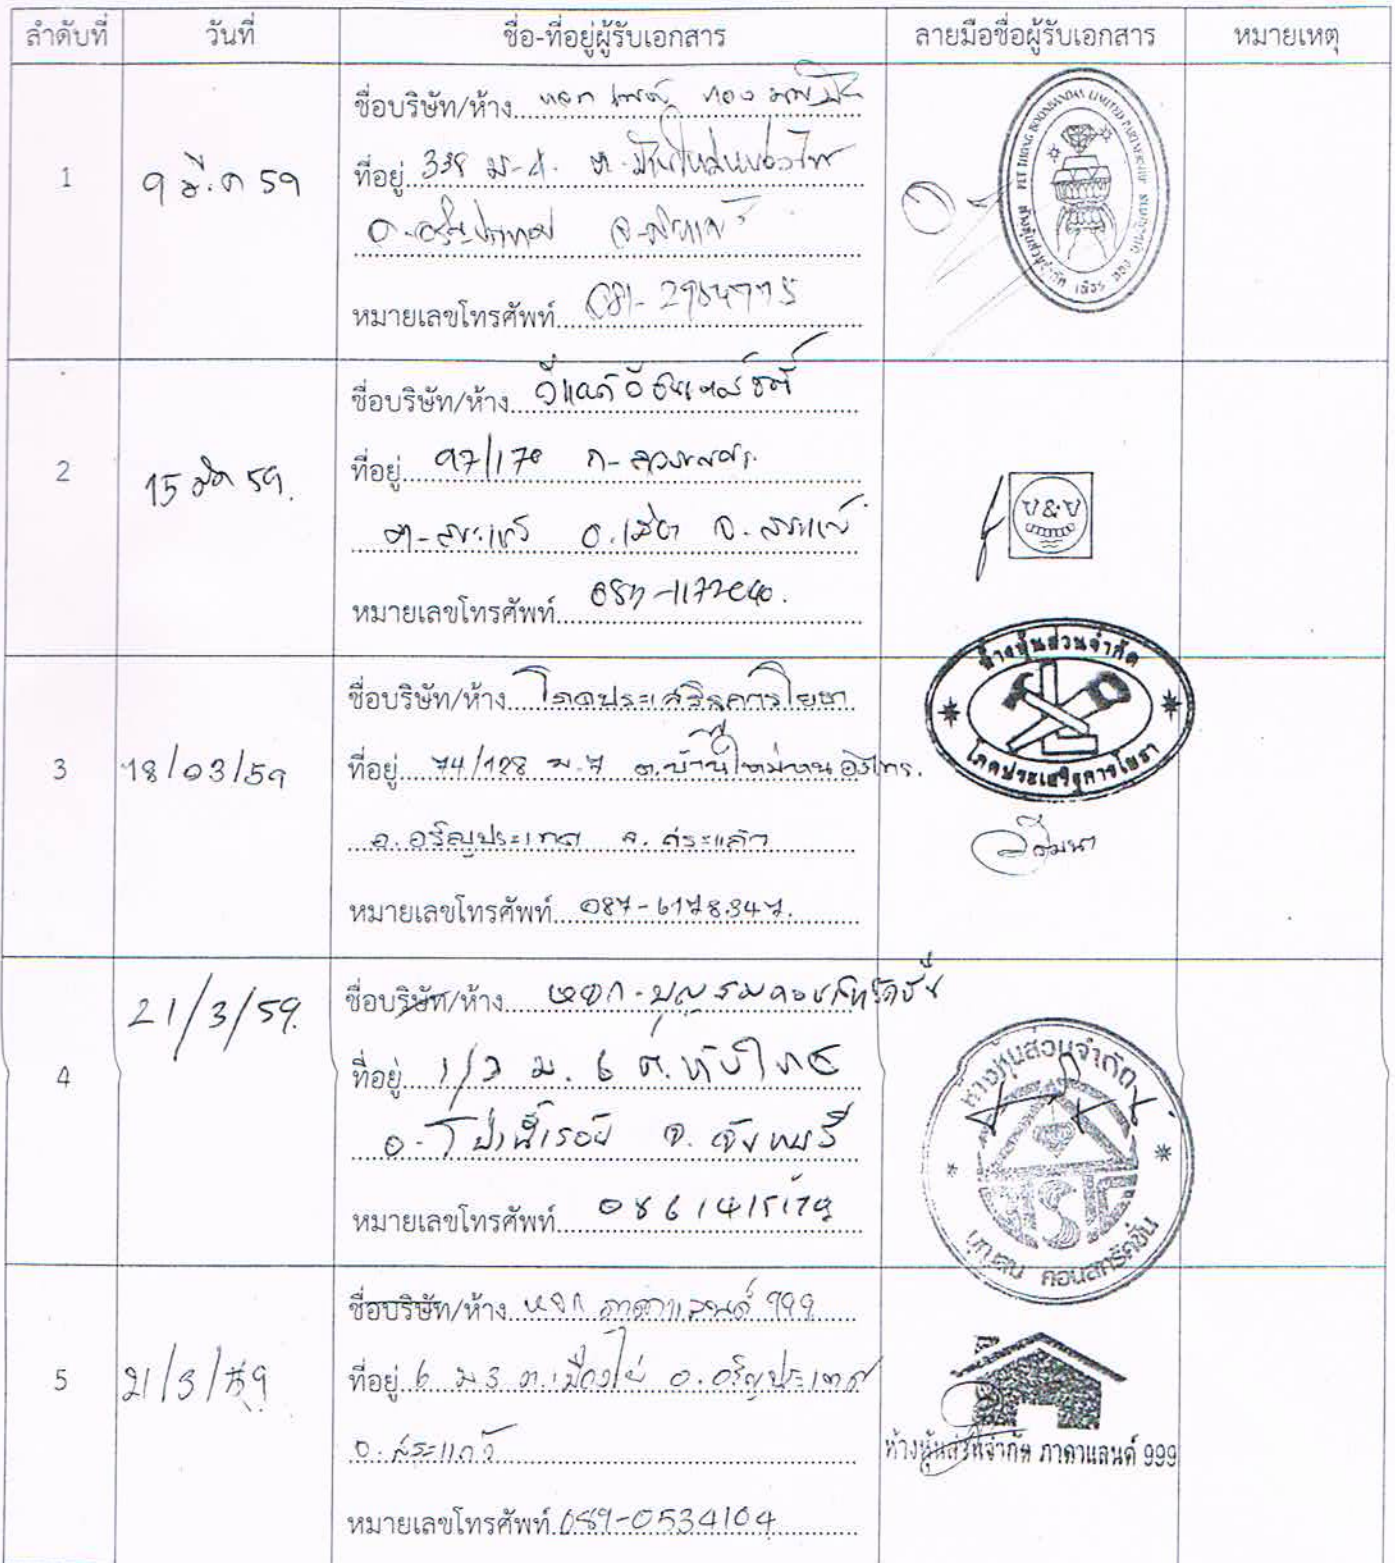 ลำดับที่ วันที่ ชื่อ-ที่อยู่ผู้รับเอกสาร ลายมือชื่อผู้รับเอกสาร หมายเหตุ
1 9 มี.ค 59
ชื่อบริษัท/ห้าง หจก เพชร ทอง
ที่อยู่ 338 ม-4. ต.บ้านใหม่หนองไทร
อ.อรัญประเทศ จ.สระแก้ว
หมายเลขโทรศัพท์ 081-
PET THONG BOONBANDAN LIMITED PARTNERSHIP
ห้างหุ้นส่วนจำกัด เพ็ชร ทอง
2 15 มีค 59.
ชื่อบริษัท/ห้าง
ที่อยู่ 97/170 ถ-
ต-สระแก้ว อ.เมือง จ.สระแก้ว
หมายเลขโทรศัพท์
ป&ป
3 18/03/59
ชื่อบริษัท/ห้าง โภคประเสริฐการโยธา
ที่อยู่ 74/128 ม.7 ต.บ้านใหม่หนองไทร.
อ.อรัญประเทศ จ.สระแก้ว
หมายเลขโทรศัพท์ 087-6178347.
ห้างหุ้นส่วนจำกัด
โภคประเสริฐการโยธา
4 21/3/59.
ชื่อบริษัท/ห้าง หจก.บุญสมคอนสทรัคชั่น
ที่อยู่ 1/2 ม. 6 ต.ทับไทร
อ.โป่งน้ำร้อน จ.จันทบุรี
หมายเลขโทรศัพท์ 086141
ห้างหุ้นส่วนจำกัด
คอนสทรัคชั่น
5 21/3/59
ชื่อบริษัท/ห้าง หจก ภาดาแลนด์ 999
ที่อยู่ 6 ม 3 ต.เมืองไผ่ อ.อรัญประเทศ
จ.สระแก้ว
หมายเลขโทรศัพท์ 089-0534104
ห้างหุ้นส่วนจำกัด ภาดาแลนด์ 999